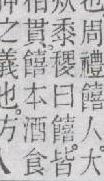 也周禮饎人大
祡黍稷曰饎皆
相貰饎本酒食
之義也方